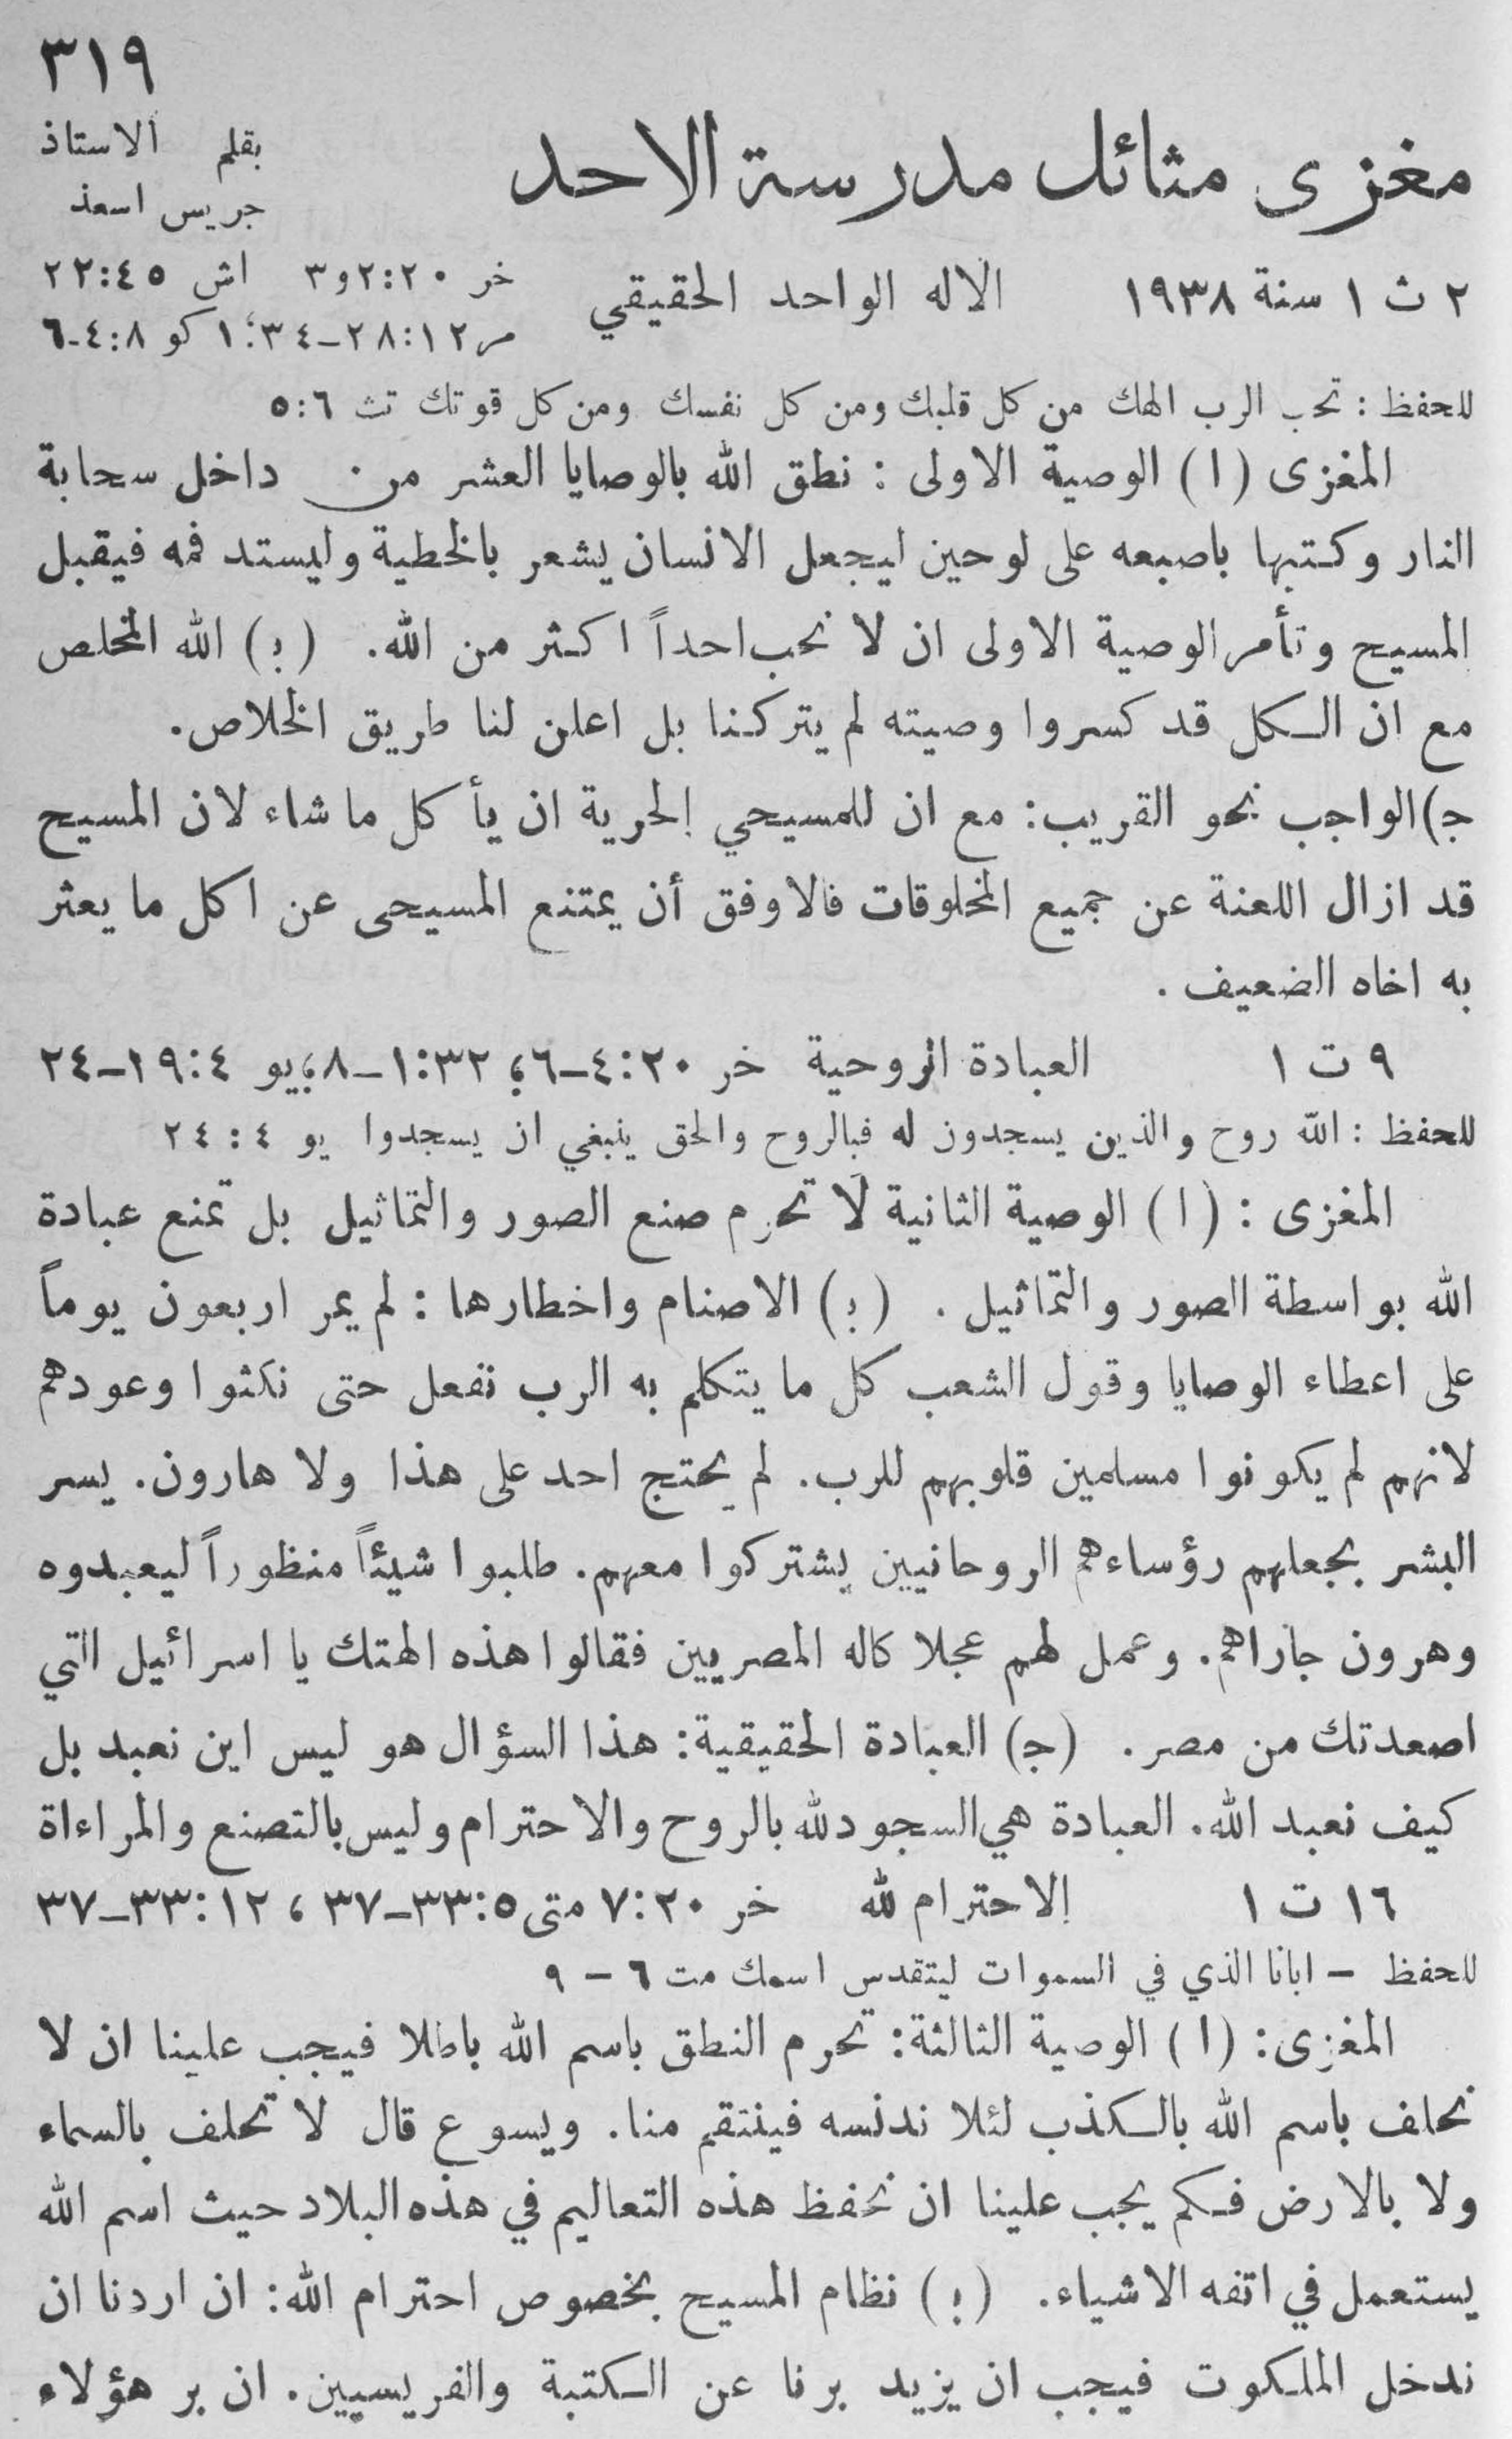 ٣١٩
مغزى مثائل مدرسة الاحد
بقلم الاستاذ
جريس اسعد
٢ ث ١ سنة ١٩٣٨ الاله الواحد الحقيقي
خر ٢:٢٠و٣ اش ٢٢:٤٥
مر ٢٨:١٢-٣٤؛ ١ كو ٤:٨-٦
للحفظ : تحب الرب الهك من كل قلبك ومن كل نفسك ومن كل قوتك تث ٥:٦
المغزى (ا) الوصية الاولى : نطق الله بالوصايا العشر من داخل سحابة
النار وكتبها باصبعه على لوحين ليجعل الانسان يشعر بالخطية وليستد فمه فيقبل
المسيح وتأمر الوصية الاولى ان لا نحب احداً اكثر من الله. (ب) الله المخلص
مع ان الكل قد كسروا وصيته لم يتركنا بل اعلن لنا طريق الخلاص.
ج) الواجب نحو القريب: مع ان للمسيحي الحرية ان يأكل ما شاء لان المسيح
قد ازال اللعنة عن جميع المخلوقات فالاوفق أن يمتنع المسيحى عن اكل ما يعثر
به اخاه الضعيف .
٩ ت ١ العبادة الروحية خر ٤:٢٠-٦؛ ١:٣٢-٨؛ يو ١٩:٤-٢٤
للحفظ : الله روح والذين يسجدون له فبالروح والحق ينبغي ان يسجدوا يو ٤ : ٢٤
المغزى : (ا) الوصية الثانية لا تحرم صنع الصور والتماثيل بل تمنع عبادة
الله بواسطة الصور والتماثيل . (ب) الاصنام واخطارها : لم يمر اربعون يوماً
على اعطاء الوصايا وقول الشعب كل ما يتكلم به الرب نفعل حتى نكثوا وعودهم
لانهم لم يكونوا مسلمين قلوبهم للرب. لم يحتج احد على هذا ولا هارون. يسر
البشر بجعلهم رؤساءهم الروحانيين يشتركوا معهم. طلبوا شيئاً منظوراً ليعبدوه
وهرون جاراهم. وعمل لهم عجلا كاله المصريين فقالوا هذه الهتك يا اسرائيل التي
اصعدتك من مصر. (ج) العبادة الحقيقية: هذا السؤال هو ليس اين نعبد بل
كيف نعبد الله. العبادة هي السجود لله بالروح والاحترام وليس بالتصنع والمراءاة
١٦ ت ١ الاحترام لله خر ٧:٢٠ متى ٣٣:٥-٣٧ ، ٣٣:١٢-٣٧
للحفظ – ابانا الذي في السموات ليتقدس اسمك مت ٦ – ٩
المغزى: (ا) الوصية الثالثة: تحرم النطق باسم الله باطلا فيجب علينا ان لا
نحلف باسم الله بالكذب لئلا ندنسه فينتقم منا. ويسوع قال لا تحلف بالسماء
ولا بالارض فكم يجب علينا ان نحفظ هذه التعاليم في هذه البلاد حيث اسم الله
يستعمل في اتفه الاشياء. (ب) نظام المسيح بخصوص احترام الله: ان اردنا ان
ندخل الملكوت فيجب ان يزيد برنا عن الكتبة والفريسيين. ان بر هؤلاء